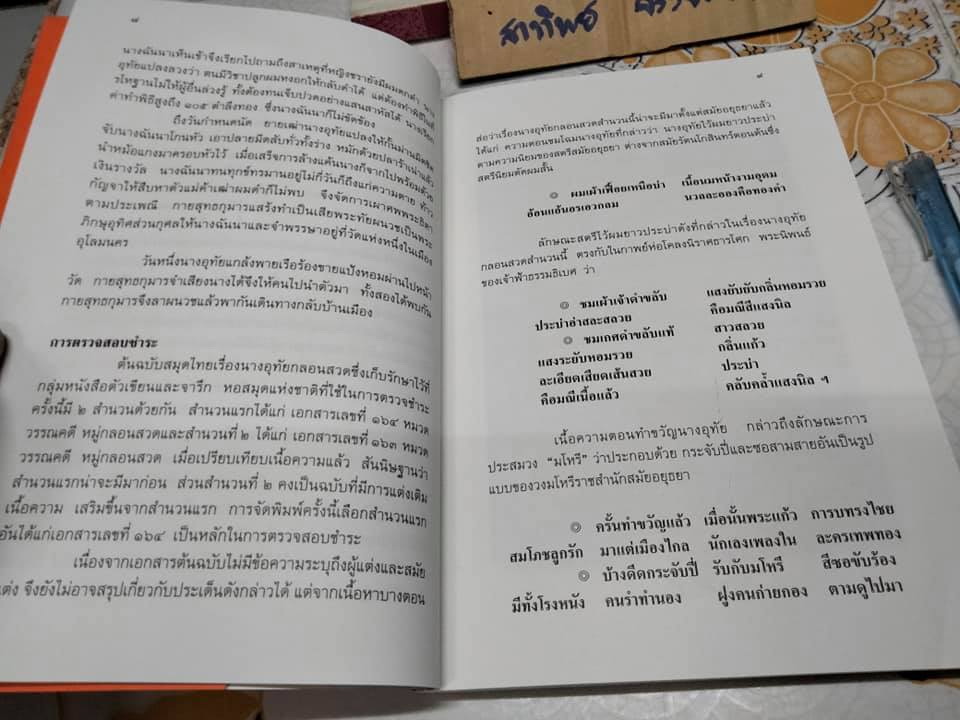 สาทิพย์
๘
นางฉันนาเห็นเข้าจึงเรียกไปถามถึงสาเหตุที่หญิงชรายังมีผมดกดำ นาง
อุทัยแปลงลวงว่า ตนมีวิชาปลูกผมหงอกให้กลับดำได้ แต่ต้องทำพิธีในที่
รโหฐานไม่ให้ผู้อื่นล่วงรู้ ทั้งต้องทนเจ็บปวดอย่างแสนสาหัสได้ นางเรียก
ค่าทำพิธีสูงถึง ๑๐๕ ตำลึงทอง ซึ่งนางฉันนาก็ไม่ขัดข้อง
ถึงวันกำหนดนัด ยายเฒ่านางอุทัยแปลงให้กั้นม่านมิดชิด
จับนางฉันนาโกนหัว เอาปลายมีดสับทั่วทั้งร่าง หมักด้วยปลาร้าเน่าแล้ว
นำหม้อแกงมาครอบหัวไว้ เมื่อเสร็จการล้างแค้นนางก็จากไปพร้อมด้วย
เงินรางวัล นางฉันนาทนทุกข์ทรมานอยู่ไม่กี่วันก็ถึงแก่ความตาย ท้าว
กัญจาให้สืบหาตัวแม่ค้าเฒ่าผมดำก็ไม่พบ จึงจัดการเผาศพพระธิดา
ตามประเพณี กายสุทธกุมารแสร้งทำเป็นเสียพระทัยผนวชเป็นพระ
ภิกษุอุทิศส่วนกุศลให้นางฉันนาและจำพรรษาอยู่ที่วัดแห่งหนึ่งในเมือง
อุโลมนคร
วันหนึ่งนางอุทัยแกล้งพายเรือร้องขายแป้งหอมผ่านไปหน้า
วัด กายสุทธกุมารจำเสียงนางได้จึงให้คนไปนำตัวมา ทั้งสองได้พบกัน
กายสุทธกุมารจึงลาผนวชแล้วพากันเดินทางกลับบ้านเมือง
การตรวจสอบชำระ
ต้นฉบับสมุดไทยเรื่องนางอุทัยกลอนสวดซึ่งเก็บรักษาไว้ที่
กลุ่มหนังสือตัวเขียนและจารึก หอสมุดแห่งชาติที่ใช้ในการตรวจชำระ
ครั้งนี้มี ๒ สำนวนด้วยกัน สำนวนแรกได้แก่ เอกสารเลขที่ ๑๖๔ หมวด
วรรณคดี หมู่กลอนสวดและสำนวนที่ ๒ ได้แก่ เอกสารเลขที่ ๑๖๓ หมวด
วรรณคดี หมู่กลอนสวด เมื่อเปรียบเทียบเนื้อความแล้ว สันนิษฐานว่า
สำนวนแรกน่าจะมีมาก่อน ส่วนสำนวนที่ ๒ คงเป็นฉบับที่มีการแต่งเติม
เนื้อความ เสริมขึ้นจากสำนวนแรก การจัดพิมพ์ครั้งนี้เลือกสำนวนแรก
อันได้แก่เอกสารเลขที่ ๑๖๔ เป็นหลักในการตรวจสอบชำระ
เนื่องจากเอกสารต้นฉบับไม่มีข้อความระบุถึงผู้แต่งและสมัย
แต่ง จึงยังไม่อาจสรุปเกี่ยวกับประเด็นดังกล่าวได้ แต่จากเนื้อหาบางตอน
๙
ส่อว่าเรื่องนางอุทัยกลอนสวดสำนวนนี้น่าจะมีมาตั้งแต่สมัยอยุธยาแล้ว
ได้แก่ ความตอนชมโฉมนางอุทัยที่กล่าวว่า นางอุทัยไว้ผมยาวประบ่า
ตามความนิยมของสตรีสมัยอยุธยา ต่างจากสมัยรัตนโกสินทร์ตอนต้นซึ่ง
สตรีนิยมตัดผมสั้น
๏ ผมเผ้าเฟื้อยเหนือบ่า เนื้อนมหน้างามอุดม
อ้อนแอ้นอรเอวกลม นวลละอองคือทองคำ
ลักษณะสตรีไว้ผมยาวประบ่าดังที่กล่าวในเรื่องนางอุทัย
กลอนสวดสำนวนนี้ ตรงกับในกาพย์ห่อโคลงนิราศธารโศก พระนิพนธ์
ของเจ้าฟ้าธรรมธิเบศ ว่า
๏ ชมเผ้าเจ้าดำขลับ แสงยับยับกลิ่นหอมรวย
ประบ่าอ่าสละสลวย คือมณีสีแสงนิล
๏ ชมเกศดำขลับแท้ สาวสลวย
แสงระยับหอมรวย กลิ่นแก้ว
ละเอียดเสียดเส้นสวย ประบ่า
คือมณีเนื้อแล้ว คลับคล้ำแสงนิล ฯ
เนื้อความตอนทำขวัญนางอุทัย กล่าวถึงลักษณะการ
ประสมวง “มโหรี” ว่าประกอบด้วย กระจับปี่และซอสามสายอันเป็นรูป
แบบของวงมโหรีราชสำนักสมัยอยุธยา
๏ ครั้นทำขวัญแล้ว เมื่อนั้นพระแก้ว การบทรงไชย
สมโภชลูกรัก มาแต่เมืองไกล นักเลงเพลงใน ละครเทพทอง
๏ บ้างดีดกระจับปี่ รับกับมโหรี สีซอขับร้อง
มีทั้งโรงหนัง คนรำทำนอง ฝูงคนก่ายกอง ตามดูไปมา